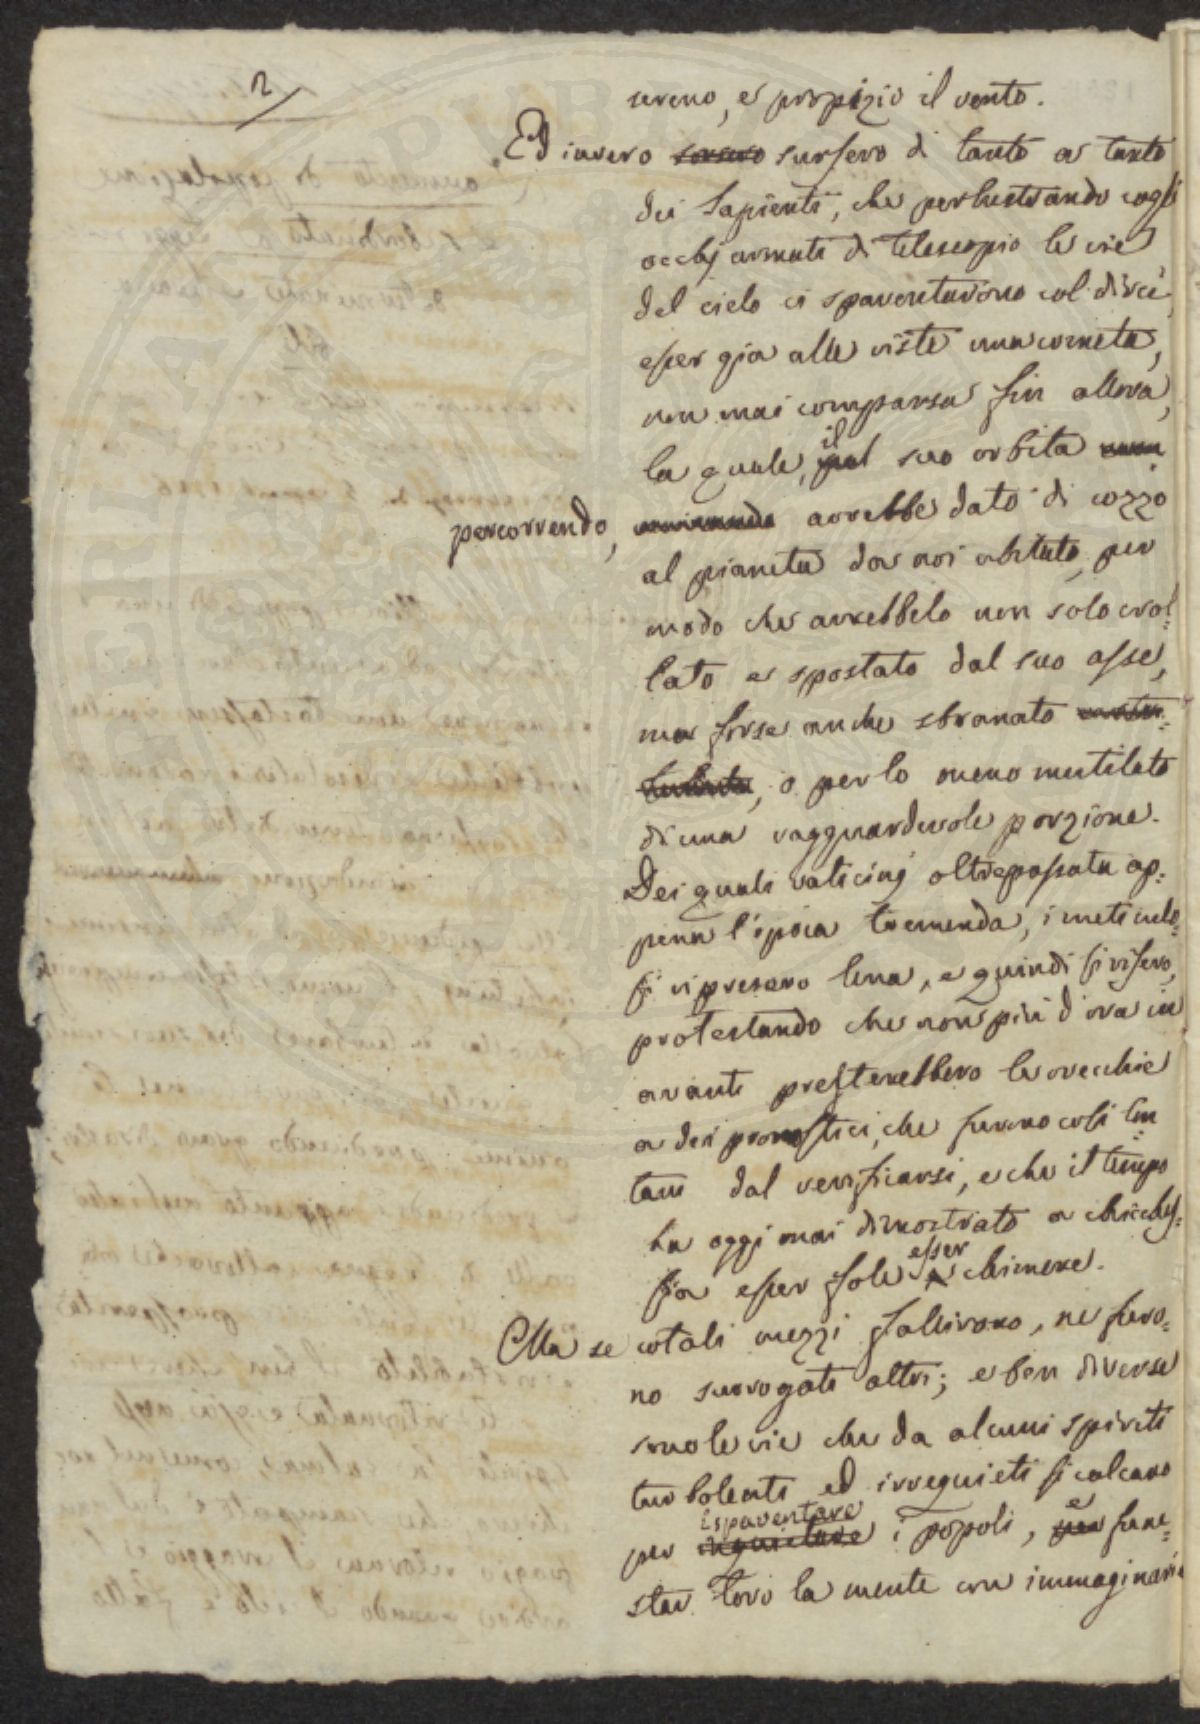 2
sereno, e propizio il vento.
Ed invero sorsero sursero di tanto a tanto
dei Sapienti, che perlustrando cogli
occhj armati di telescopio le vie
del cielo ci spaventarono col dirci,
esser già alle viste una cometa,
non mai comparsa fin allora,
la quale, il suo orbita
percorrendo, avrebbe dato di cozzo
al pianeta da noi abitato, per
modo che avrebbelo non solo crol=
lato e spostato dal suo asse,
ma forse anche sbranato
, o per lo meno mutilato
di una ragguardevole porzione.
Dei quali vaticinj oltrepassata ap=
pena l'epoca tremenda, i meticulo=
si ripresero lena, e quindi si risero,
protestando che non più d'ora in
avanti presterebbero le orecchie
a dei pronostici, che furono così lon=
tani dal verificarsi, e che il tempo
ha oggi mai dimostrato a chicches=
sia esser fole esser chimere.
Ma se cotali mezzi fallirono, ne furo=
no surrogati altri; e ben diverse
sono le vie che da alcuni spiriti
turbolenti ed irrequieti si calcano
per inquietare ispaventare i popoli, per e fune=
star loro la mente con immaginarie